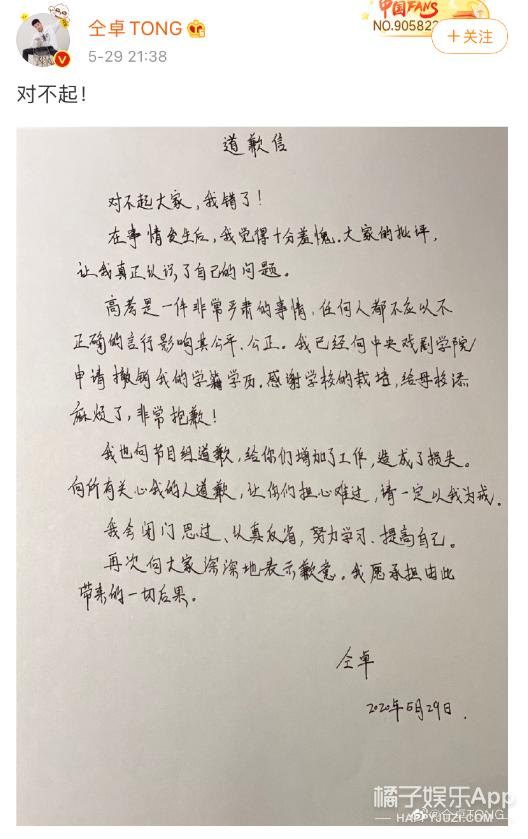 仝卓TONG
5-29 21:38
中国FANS
NO.905822
+关注
对不起!
道歉信
对不起大家,我错了!
在事情发生后,我觉得十分羞愧。大家的批评,
让我真正认识了自己的问题。
高考是一件非常严肃的事情,任何人都不应以不
正确的言行影响其公平、公正。我已经向中央戏剧学院
申请撤销我的学籍学历。感谢学校的栽培,给母校添
麻烦了,非常抱歉!
我也向节目组道歉,给你们增加了工作,造成了损失。
向所有关心我的人道歉,让你们担心难过,请一定以我为戒。
我会闭门思过、认真反省,努力学习、提高自己。
再次向大家深深地表示歉意。我愿承担由此
带来的一切后果。
仝卓
2020年5月29日.
橘子娱乐App
@仝卓TONG
HAPPYJUZI.COM